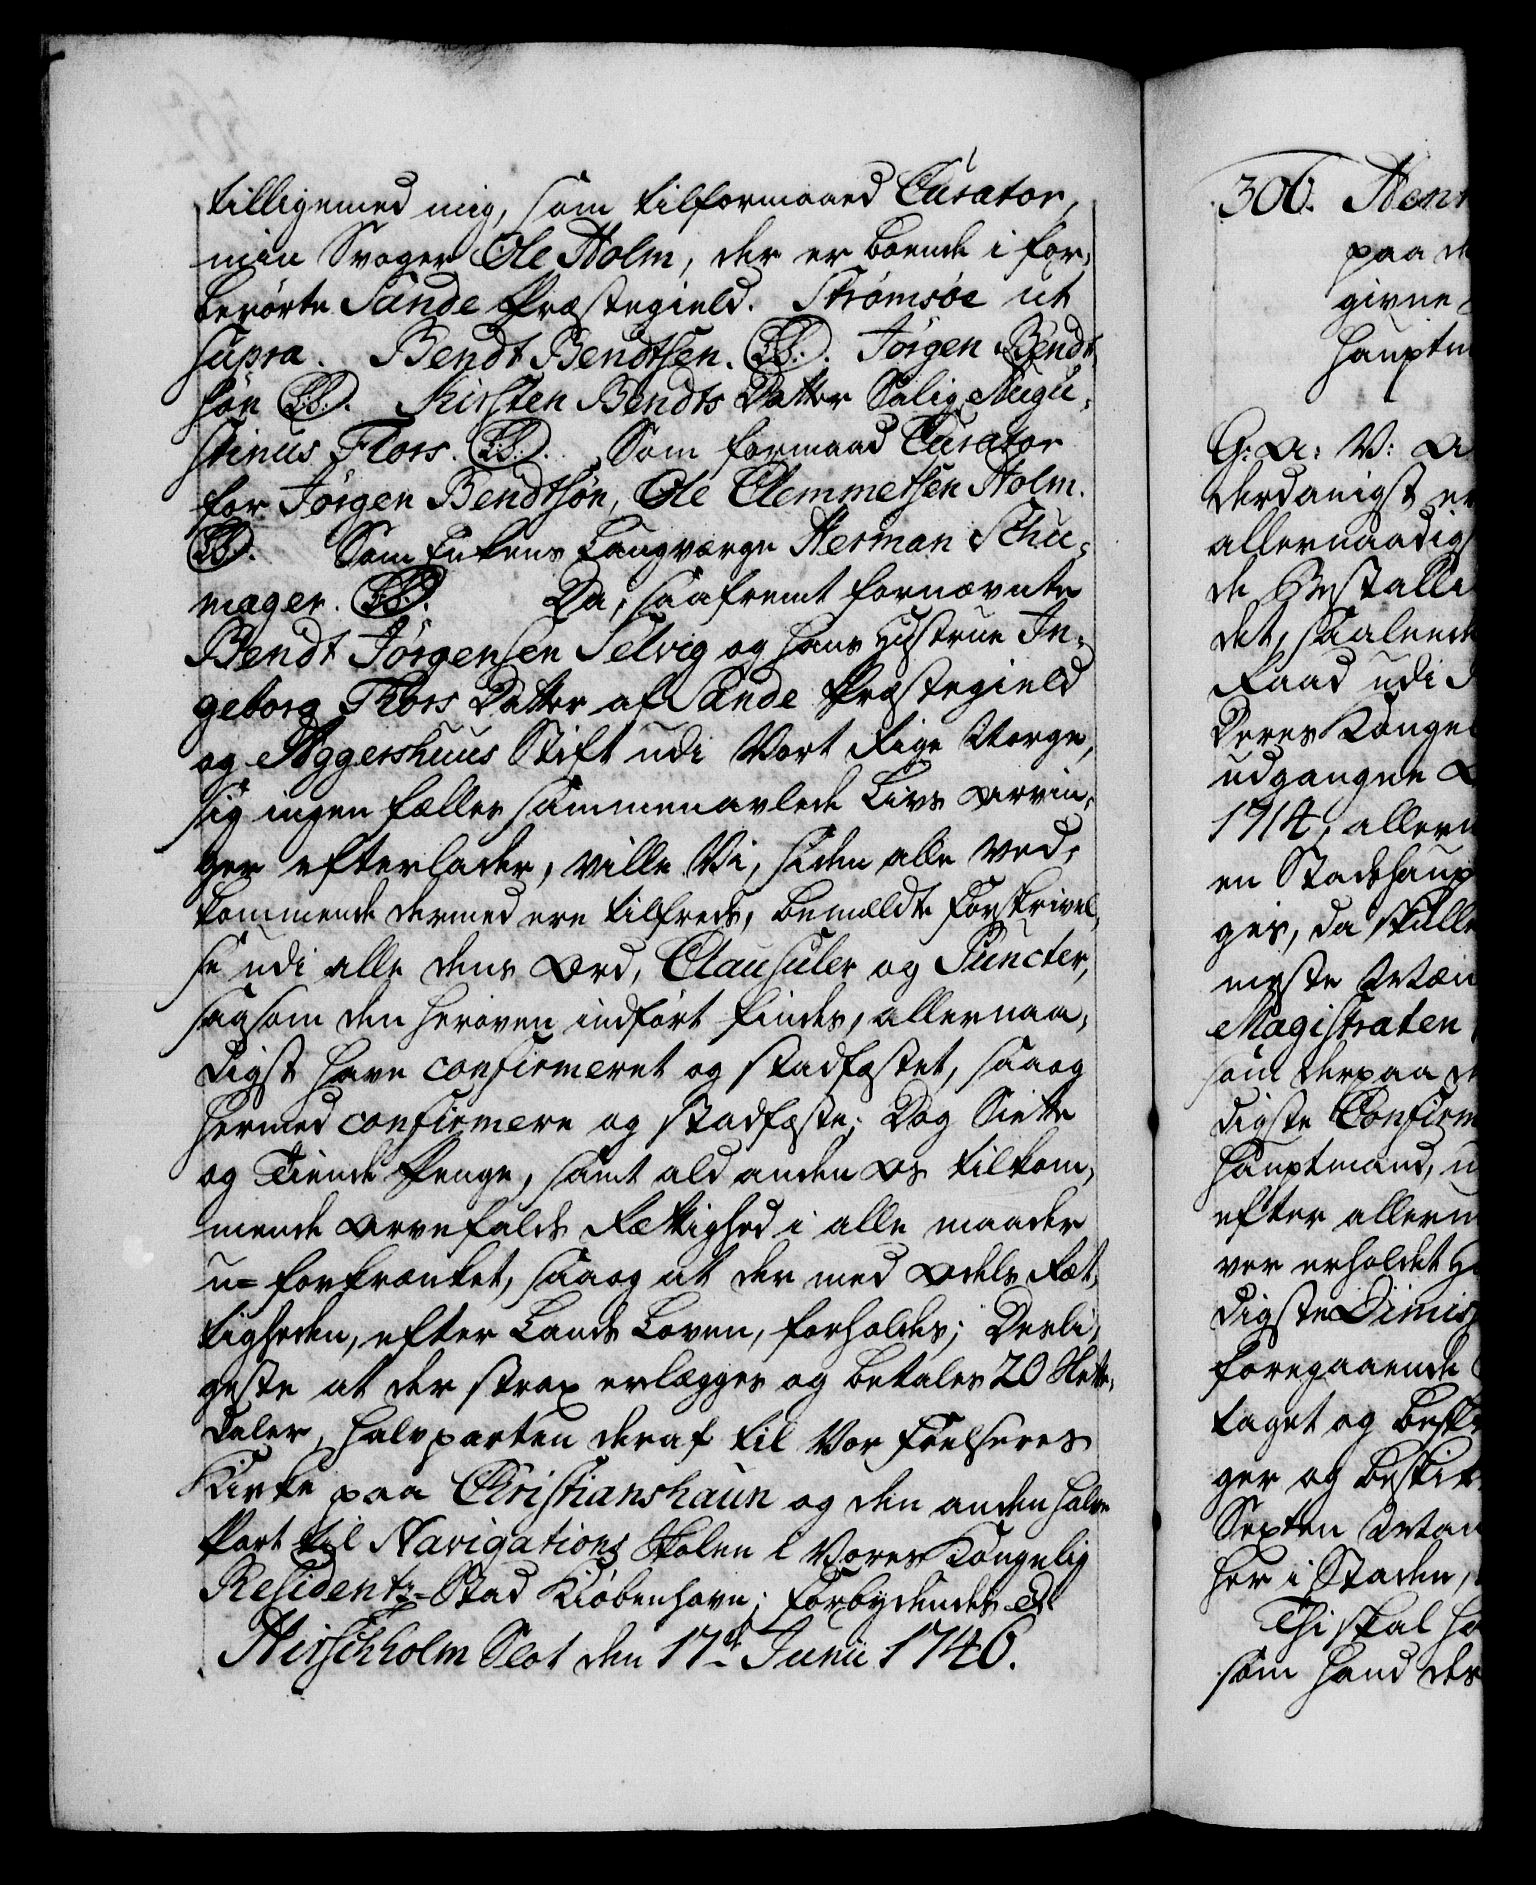 tilligemed mig, som tilformaaed Curator,
min Svoger Ole Holm, der er boende i for,
berørte Sande Præstegield. Strømsøe ut
supra. Bendt Bendtsen. (L.S.). Jørgen Bendt
søn (L.S.). Kirsten Bendts Datter Salig Augu,
stinus Flors. (L.S.). Som formaaed Curator
for Jørgen Bendtsøn, Ole Clemmetsen Holm.
(L.S.). Som Enkens Laugværge Herman Schu,
mager. (L.S.). Da, saafremt fornævnte
Bendt Jørgensen Selvig og hans Hustrue In,
geborg Flors Datter af Sande Præstegield
og Aggershuus Stift udi Vort Rige Norge,
sig ingen fælles sammenavlede Livs Arvin,
ger efterlader, ville Vi, siden alle Ved,
kommende dermed ere tilfreds, bemældte Forskrivel,
se udi alle dens Ord, Clausuler og Puncter,
saasom den heroven indført findes, allernaa,
digst have confirmeret og stadfæstet, saaog
hermed confirmere og stadfæste; Dog Siette
og Tiende Penge, samt ald anden Os tilkom,
mende Arvefalds Rættighed i alle maader
u=forkrænket, saaog at der med Odels Ræt,
tigheden, efter Lands Loven, forholdes; Desli,
geste at der strax erlægges og betales 20 Slette,
daler, halvparten deraf til Vor Frelseres
Kirke paa Christianshaun og den anden halve
Part til Navigations Skolen i Vores Kongelig
Residentz-Stad Kiøbenhavn; Forbydendes &c.
Hirschholm Slot den 17de Junii 1746.
306. Hen
paa de
givne
Hauptm
G: A: V: A
derdanigst er
allernaadigs
de Bestalli
det, saaleede
Raad udi
Deres Konge
udgangne
1714, allern
en Stadshaup
ges, da skulle
meste
Magistraten
som derpaa de
digste Confirm
Hauptmand, u
efter allern
ver erholdet
digste Dimis
foregaaende
taget og besk
ger og beskik
Sexten
her i Staden,
Thi skal ha
som hand der